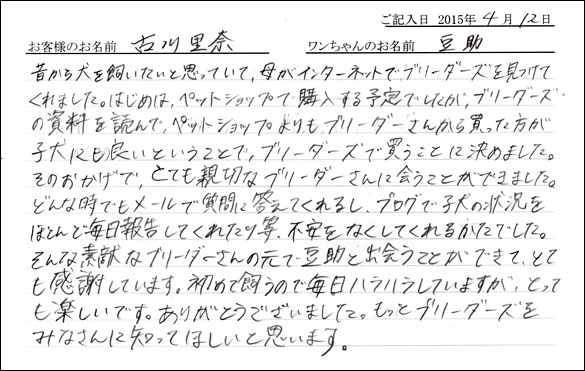 ご記入日 2015年4月12日
お客様のお名前 古川里奈 ワンちゃんのお名前 豆助
昔から犬を飼いたいと思っていて、母がインターネットでブリーダーズを見つけて
くれました。はじめは、ペットショップで購入する予定でしたが、ブリーダーズ
の資料を読んで、ペットショップよりもブリーダーさんから買った方が
子犬にも良いということで、ブリーダーズで買うことに決めました。
そのおかげで、とても親切なブリーダーさんに会うことができました。
どんな時でもメールで質問に答えてくれるし、ブログで子犬の状況を
ほとんど毎日報告してくれたり等、不安をなくしてくれるかたでした。
そんな素敵なブリーダーさんの元で豆助と出会うことができて、とて
も感謝しています。初めて飼うので毎日ハラハラしていますが、とって
も楽しいです。ありがとうございました。もっとブリーダーズを
みなさんに知ってほしいと思います。